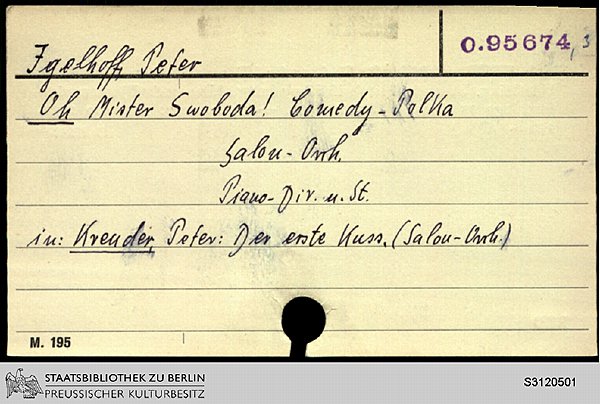 Igelhoff Peter
O.95674,3
Oh Mister Swoboda! Comedy-Polka
Salon-Orch.
Piano-Dir. u. St.
in: Kreuder Peter: Der erste Kuss. (Salon-Orch.)
M. 195
STAATSBIBLIOTHEK ZU BERLIN
PREUSSISCHER KULTURBESITZ
S3120501